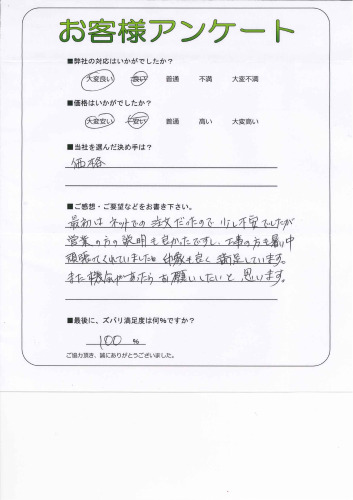 お客様アンケート
■弊社の対応はいかがでしたか?
大変良い 良い 普通 不満 大変不満
■価格はいかがでしたか?
大変安い 安い 普通 高い 大変高い
■当社を選んだ決め手は?
価格
■ご感想・ご要望などをお書き下さい。
最初はネットでの注文だったので少し不安でしたが
営業の方の説明も良かったですし、工事の方も暑い中
頑張ってくれていました。 も良く満足しています。
また機会があったらお願いしたいと思います。
■最後に、ズバリ満足度は何%ですか?
100 %
ご協力頂き、誠にありがとうございました。